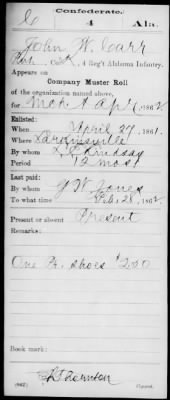 Confederate.
C 4 Ala.
John W. Carr
Pvt., Co. K, 4 Reg't Alabama Infantry.
Appears on
Company Muster Roll
of the organization named above,
for Mch & Apr, 1862.
Enlisted:
When April 27, 1861.
Where Larkinsville
By whom Lindsay
Period 12 mos.
Last paid:
By whom G W Jones
To what time Feb. 28, 1862.
Present or absent Present
Remarks:
One Pr. shoes $2.00
Book mark:
Thornton
(642) Copyist.